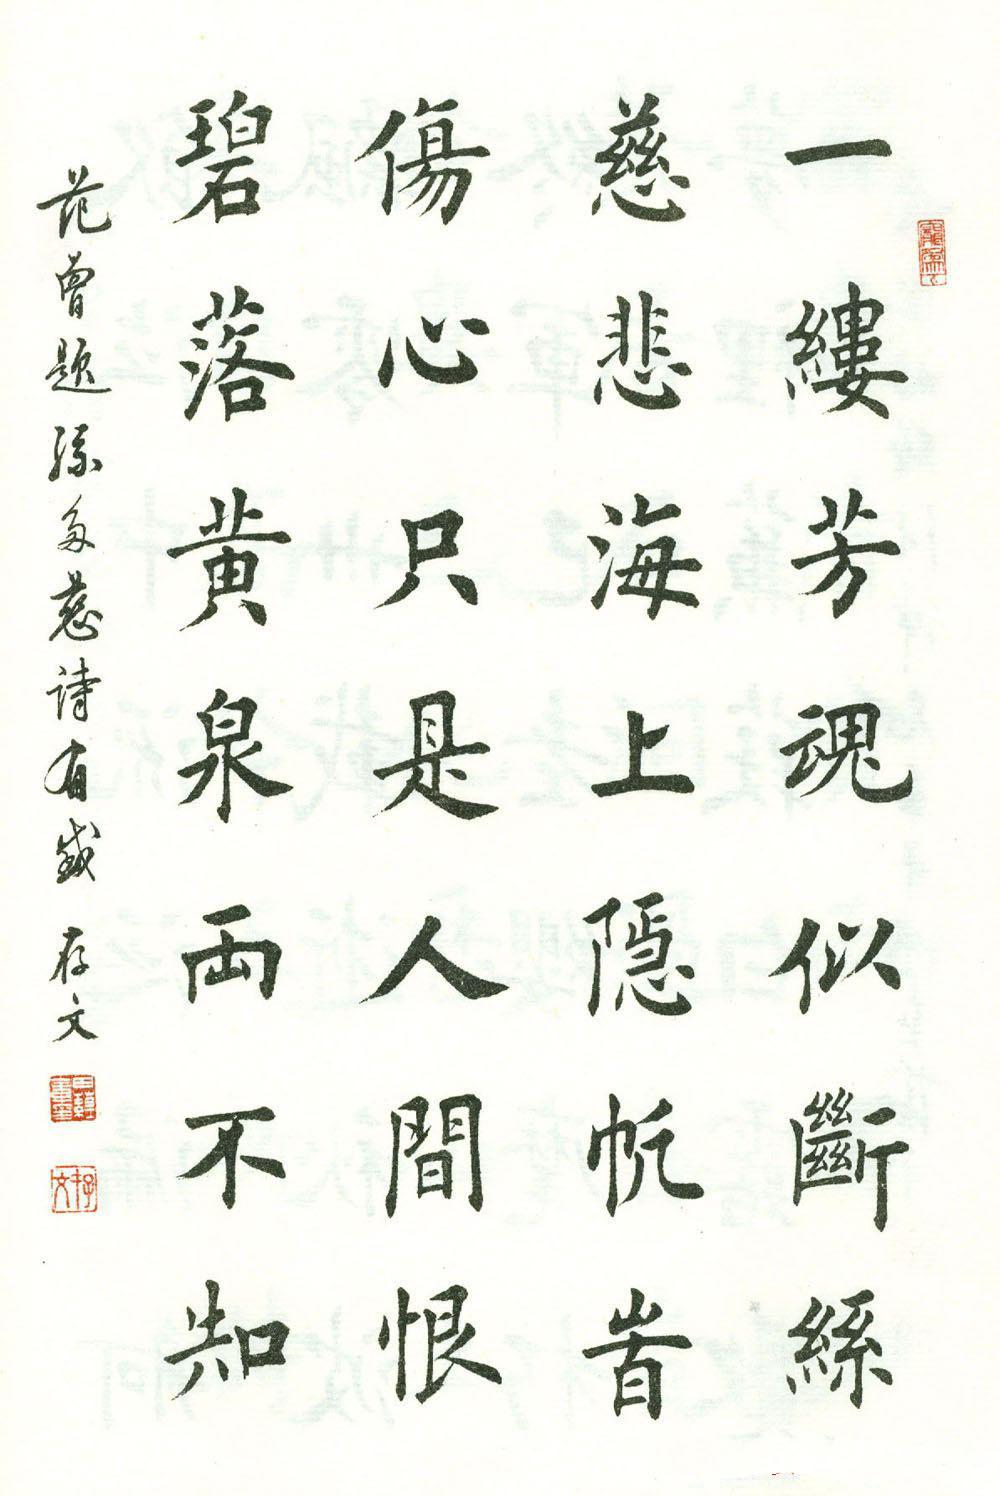 一縷芳魂似斷絲
慈悲海上隱帆旹
傷心只是人間恨
碧落黄泉両不知
范曾題孫多慈詩有感 存文
存文